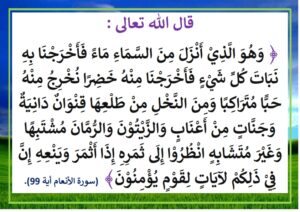 قال الله تعالى :
﴿ وَهُوَ الَّذِيْ أَنْزَلَ مِنَ السَّمَاءِ مَاءً فَأَخْرَجْنَا بِهِ
نَبَاتَ كُلِّ شَيْءٍ فَأَخْرَجْنَا مِنْهُ خَضِرًا نُخْرِجُ مِنْهُ
حَبًّا مُتَرَاكِبًا وَمِنَ النَّخْلِ مِنْ طَلْعِهَا قِنْوَانٌ دَانِيَةٌ
وَجَنَّاتٍ مِنْ أَعْنَابٍ وَالزَّيْتُوْنَ وَالرُّمَّانَ مُشْتَبِهًا
وَغَيْرَ مُتَشَابِهٍ انْظُرُوْا إِلَى ثَمَرِهِ إِذَا أَثْمَرَ وَيَنْعِهِ إِنَّ
فِيْ ذَلِكُمْ لَآيَاتٍ لِقَوْمٍ يُؤْمِنُوْنَ ﴾ (سورة الأنعام آية 99).